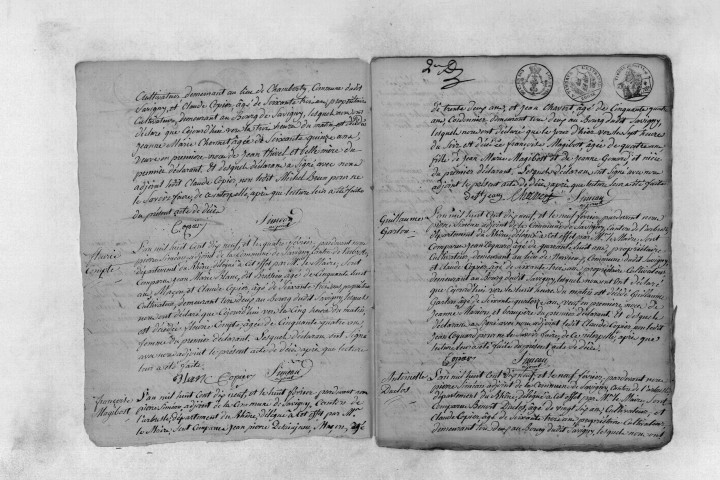 Cultivateur demeurant au lieu de Chamberty, Commune dudit
Savigny, et Claude Copier, âgé de Soixante treize ans, propriétaire
Cultivateur, demeurant au Bourg de Savigny, lesquels nous ont
déclaré que Cejourd'hui vers les trois heures du matin, est décédée
Jeanne Marie Chermet âgée de Soixante quinze ans,
Veuve en première noces de Jean Thivel, et belle mère du
premier déclarant. Et desquels déclarans a Signé avec nous
adjoint ledit Claude Copier, non ledit Michel Brun pour ne
le Savoir faire, de ce interpellé, après que lecture leur a été faite
du présent acte de décès
Copier Simean
Pierrette
Compte
L'an mil huit Cent dix neuf et le quatre février, pardevant nous
pierre Simean adjoint de la Commune de Savigny, Canton de l'arbresle
département du Rhône, délégué à Cet effet par Mr le Maire, Sont
Comparus Jean Marie Blanc, dit Brossin âgé de Cinquante huit
ans, Maçon, et Claude Copier, âgé de Soixante treize ans propriétaire
Cultivateur, demeurant tous deux au Bourg dudit Savigny, lesquels
nous ont déclaré que Cejourd'hui vers les Cinq heures du matin,
est décédée Pierrette Compte, âgée de Cinquante quatre ans
femme du premier déclarant. Lesquels déclarans ont Signé
avec nous adjoint le présent acte de décès, après que lecture
leur a été faite.
Blanc Copier Simean
Françoise
Magibost
L'an mil huit Cent dix neuf, et le huit février, pardevant nous
pierre Simean adjoint de la Commune de Savigny, Canton de
l'arbresle, département du Rhône, délégué à Cet effet par Mr
le Maire, Sont Comparus Jean pierre
Maçon, âgé
de trente deux ans, et Jean Chavent âgé de Cinquante quatre
ans, Cordonnier, demeurant tous deux au Bourg dudit Savigny,
lesquels nous ont déclaré que le Jour d'hier vers les Sept heures
du Soir est décédée françoise Magibost, âgée de quatre ans
fille de Jean Marie Magibost et de Jeanne et nièce
du premier déclarant. Lesquels déclarans ont Signé avec nous
adjoint le présent acte de décès, après que lecture leur a été faite
Chavent Simean
Guillaume
Gardon
L'an mil huit Cent dix neuf et le neuf février, pardevant nous
pierre Simean adjoint de la Commune de Savigny, Canton de l'arbresle
département du Rhône, délégué à Cet effet par Mr le Maire, Sont
Comparus Jean Coquard, âgé de quarante huit ans, propriétaire
Cultivateur, demeurant au lieu de Commune dudit Savigny,
et Claude Copier, âgé de Soixante treize ans, propriétaire Cultivateur,
demeurant au Bourg dudit Savigny, lesquels nous ont déclaré
que Cejourd'hui vers les huit heures du matin, est décédé Guillaume
Gardon âgé de Soixante quatre ans, veuf en première noces de
Jeanne et beaupère du premier déclarant. Et desquels
déclarans a Signé avec nous adjoint ledit Claude Copier, non ledit
Jean Coquard pour ne le Savoir faire, de Ce interpellé, après que
lecture leur a été faite du présent acte de décès.
Copier Simean
Antoinette
Duclos
L'an mil huit Cent dix neuf et le neuf février, pardevant nous
pierre Simean adjoint de la Commune de Savigny, Canton de l'arbresle
département du Rhône, délégué à Cet effet par Mr le Maire, Sont
Comparus Benoit Duclos, âgé de vingt Six ans, Cultivateur, et
Claude Copier, âgé de Soixante treize ans, propriétaire Cultivateur,
demeurant tous deux au Bourg dudit Savigny, lesquels nous ont